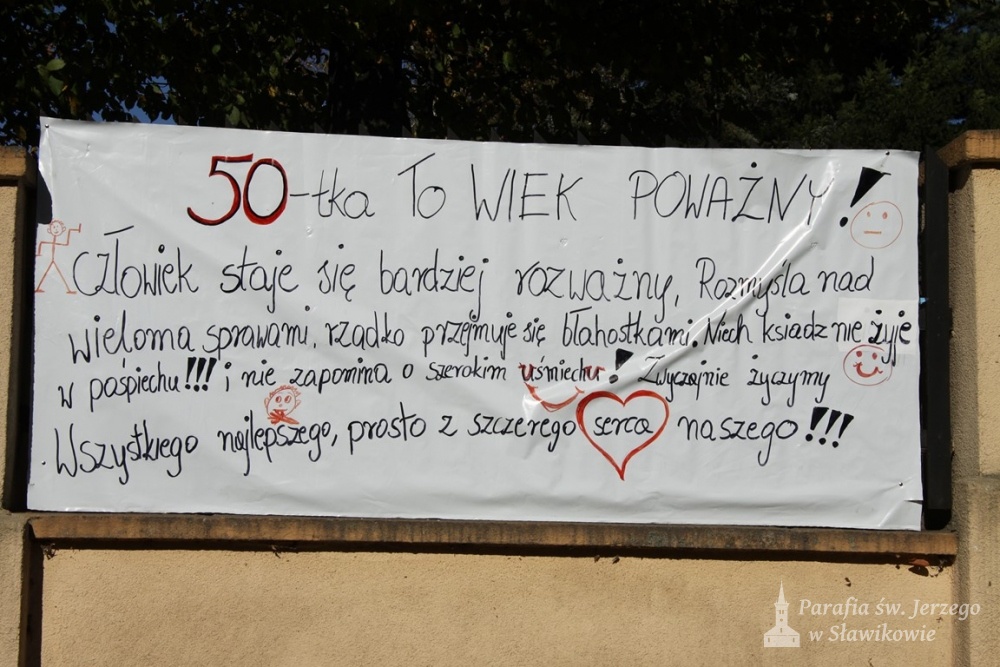 50-tka To WIEK POWAŻNY!
Człowiek staje się bardziej rozważny, Rozmyśla nad
wieloma sprawami, rzadko przejmuje się błahostkami. Niech ksiądz nie żyje
w pośpiechu!!! i nie zapomina o szerokim uśmiechu! Zwyczajnie życzymy
Wszystkiego najlepszego, prosto z szczerego serca naszego!!!
Parafia św. Jerzego
w Sławikowie